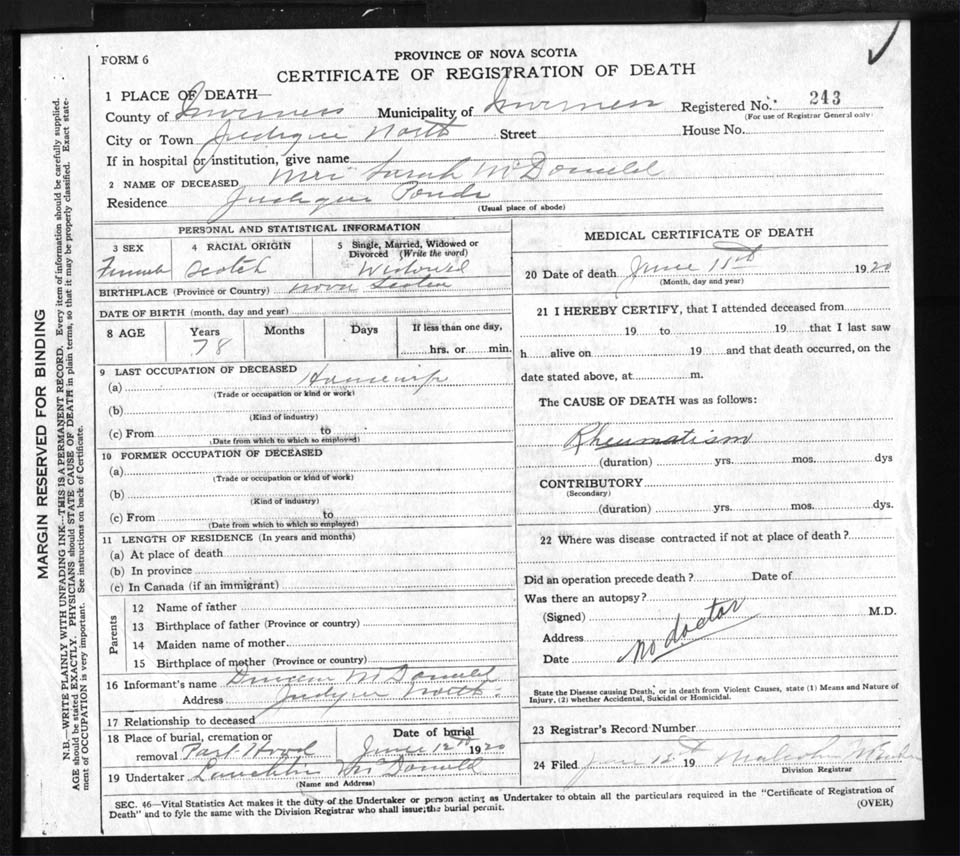 FORM 6
PROVINCE OF NOVA SCOTIA
CERTIFICATE OF REGISTRATION OF DEATH
1 PLACE OF DEATH—
County of Inverness Municipality of Inverness Registered No. 243
(For use of Registrar General only)
City or Town Judique North Street House No.
If in hospital or institution, give name
2 NAME OF DECEASED Mrs Sarah McDonald
Residence Judique Ponds
(Usual place of abode)
PERSONAL AND STATISTICAL INFORMATION
3 SEX 4 RACIAL ORIGIN 5 Single, Married, Widowed or Divorced (Write the word)
Female Scotch Widowed
BIRTHPLACE (Province or Country) Nova Scotia
DATE OF BIRTH (month, day and year)
8 AGE Years Months Days If less than one day,
78 hrs. or min.
9 LAST OCCUPATION OF DECEASED
(a) Housewife
(Trade or occupation or kind or work)
(b)
(Kind of industry)
(c) From to
(Date from which to which so employed)
10 FORMER OCCUPATION OF DECEASED
(a)
(Trade or occupation or kind of work)
(b)
(Kind of industry)
(c) From to
(Date from which to which so employed)
11 LENGTH OF RESIDENCE (In years and months)
(a) At place of death
(b) In province
(c) In Canada (if an immigrant)
Parents
12 Name of father
13 Birthplace of father (Province or country)
14 Maiden name of mother
15 Birthplace of mother (Province or country)
16 Informant's name Duncan McDonald
Address Judique North
17 Relationship to deceased
18 Place of burial, cremation or removal Port Hood
Date of burial June 12th 1920
19 Undertaker Lauchlin McDonald
(Name and Address)
MEDICAL CERTIFICATE OF DEATH
20 Date of death June 11th 1920
(Month, day and year)
21 I HEREBY CERTIFY, that I attended deceased from
19 to 19 that I last saw
h alive on 19 and that death occurred, on the
date stated above, at m.
The CAUSE OF DEATH was as follows:
Rheumatism
(duration) yrs. mos. dys
CONTRIBUTORY
(Secondary)
(duration) yrs. mos. dys.
22 Where was disease contracted if not at place of death?
Did an operation precede death? Date of
Was there an autopsy?
(Signed) M.D.
Address no doctor
Date
State the Disease causing Death, or in death from Violent Causes, state (1) Means and Nature of
Injury, (2) whether Accidental, Suicidal or Homicidal.
23 Registrar's Record Number
24 Filed June 19 Malcolm
Division Registrar
SEC. 46—Vital Statistics Act makes it the duty of the Undertaker or person acting as Undertaker to obtain all the particulars required in the "Certificate of Registration of
Death" and to fyle the same with the Division Registrar who shall issue the burial permit.
(OVER)
MARGIN RESERVED FOR BINDING
N.B.—WRITE PLAINLY WITH UNFADING INK—THIS IS A PERMANENT RECORD. Every item of information should be carefully supplied.
AGE should be stated EXACTLY. PHYSICIANS should STATE CAUSE OF DEATH in plain terms, so that it may be properly classified. Exact state-
ment of OCCUPATION is very important. See instructions on back of Certificate.